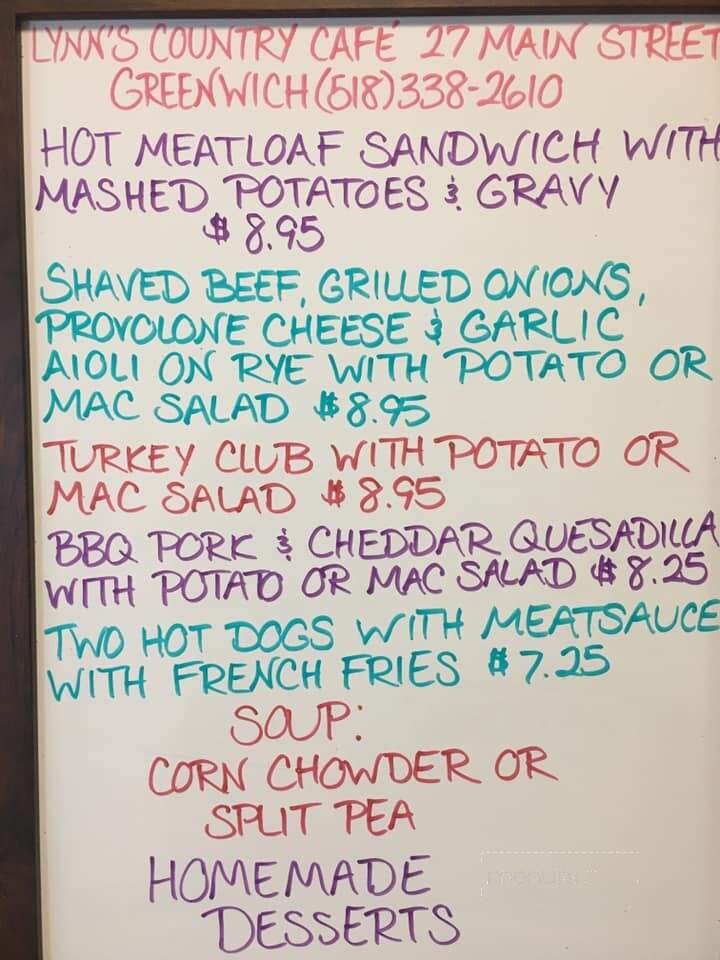 LYNN'S COUNTRY CAFÉ 27 MAIN STREET
GREENWICH (518) 338-2610
HOT MEATLOAF SANDWICH WITH
MASHED POTATOES & GRAVY
$ 8.95
SHAVED BEEF, GRILLED ONIONS,
PROVOLONE CHEESE & GARLIC
AIOLI ON RYE WITH POTATO OR
MAC SALAD $8.95
TURKEY CLUB WITH POTATO OR
MAC SALAD $8.95
BBQ PORK & CHEDDAR QUESADILLA
WITH POTATO OR MAC SALAD $8.25
TWO HOT DOGS WITH MEATSAUCE
WITH FRENCH FRIES $7.25
SOUP:
CORN CHOWDER OR
SPLIT PEA
HOMEMADE
DESSERTS